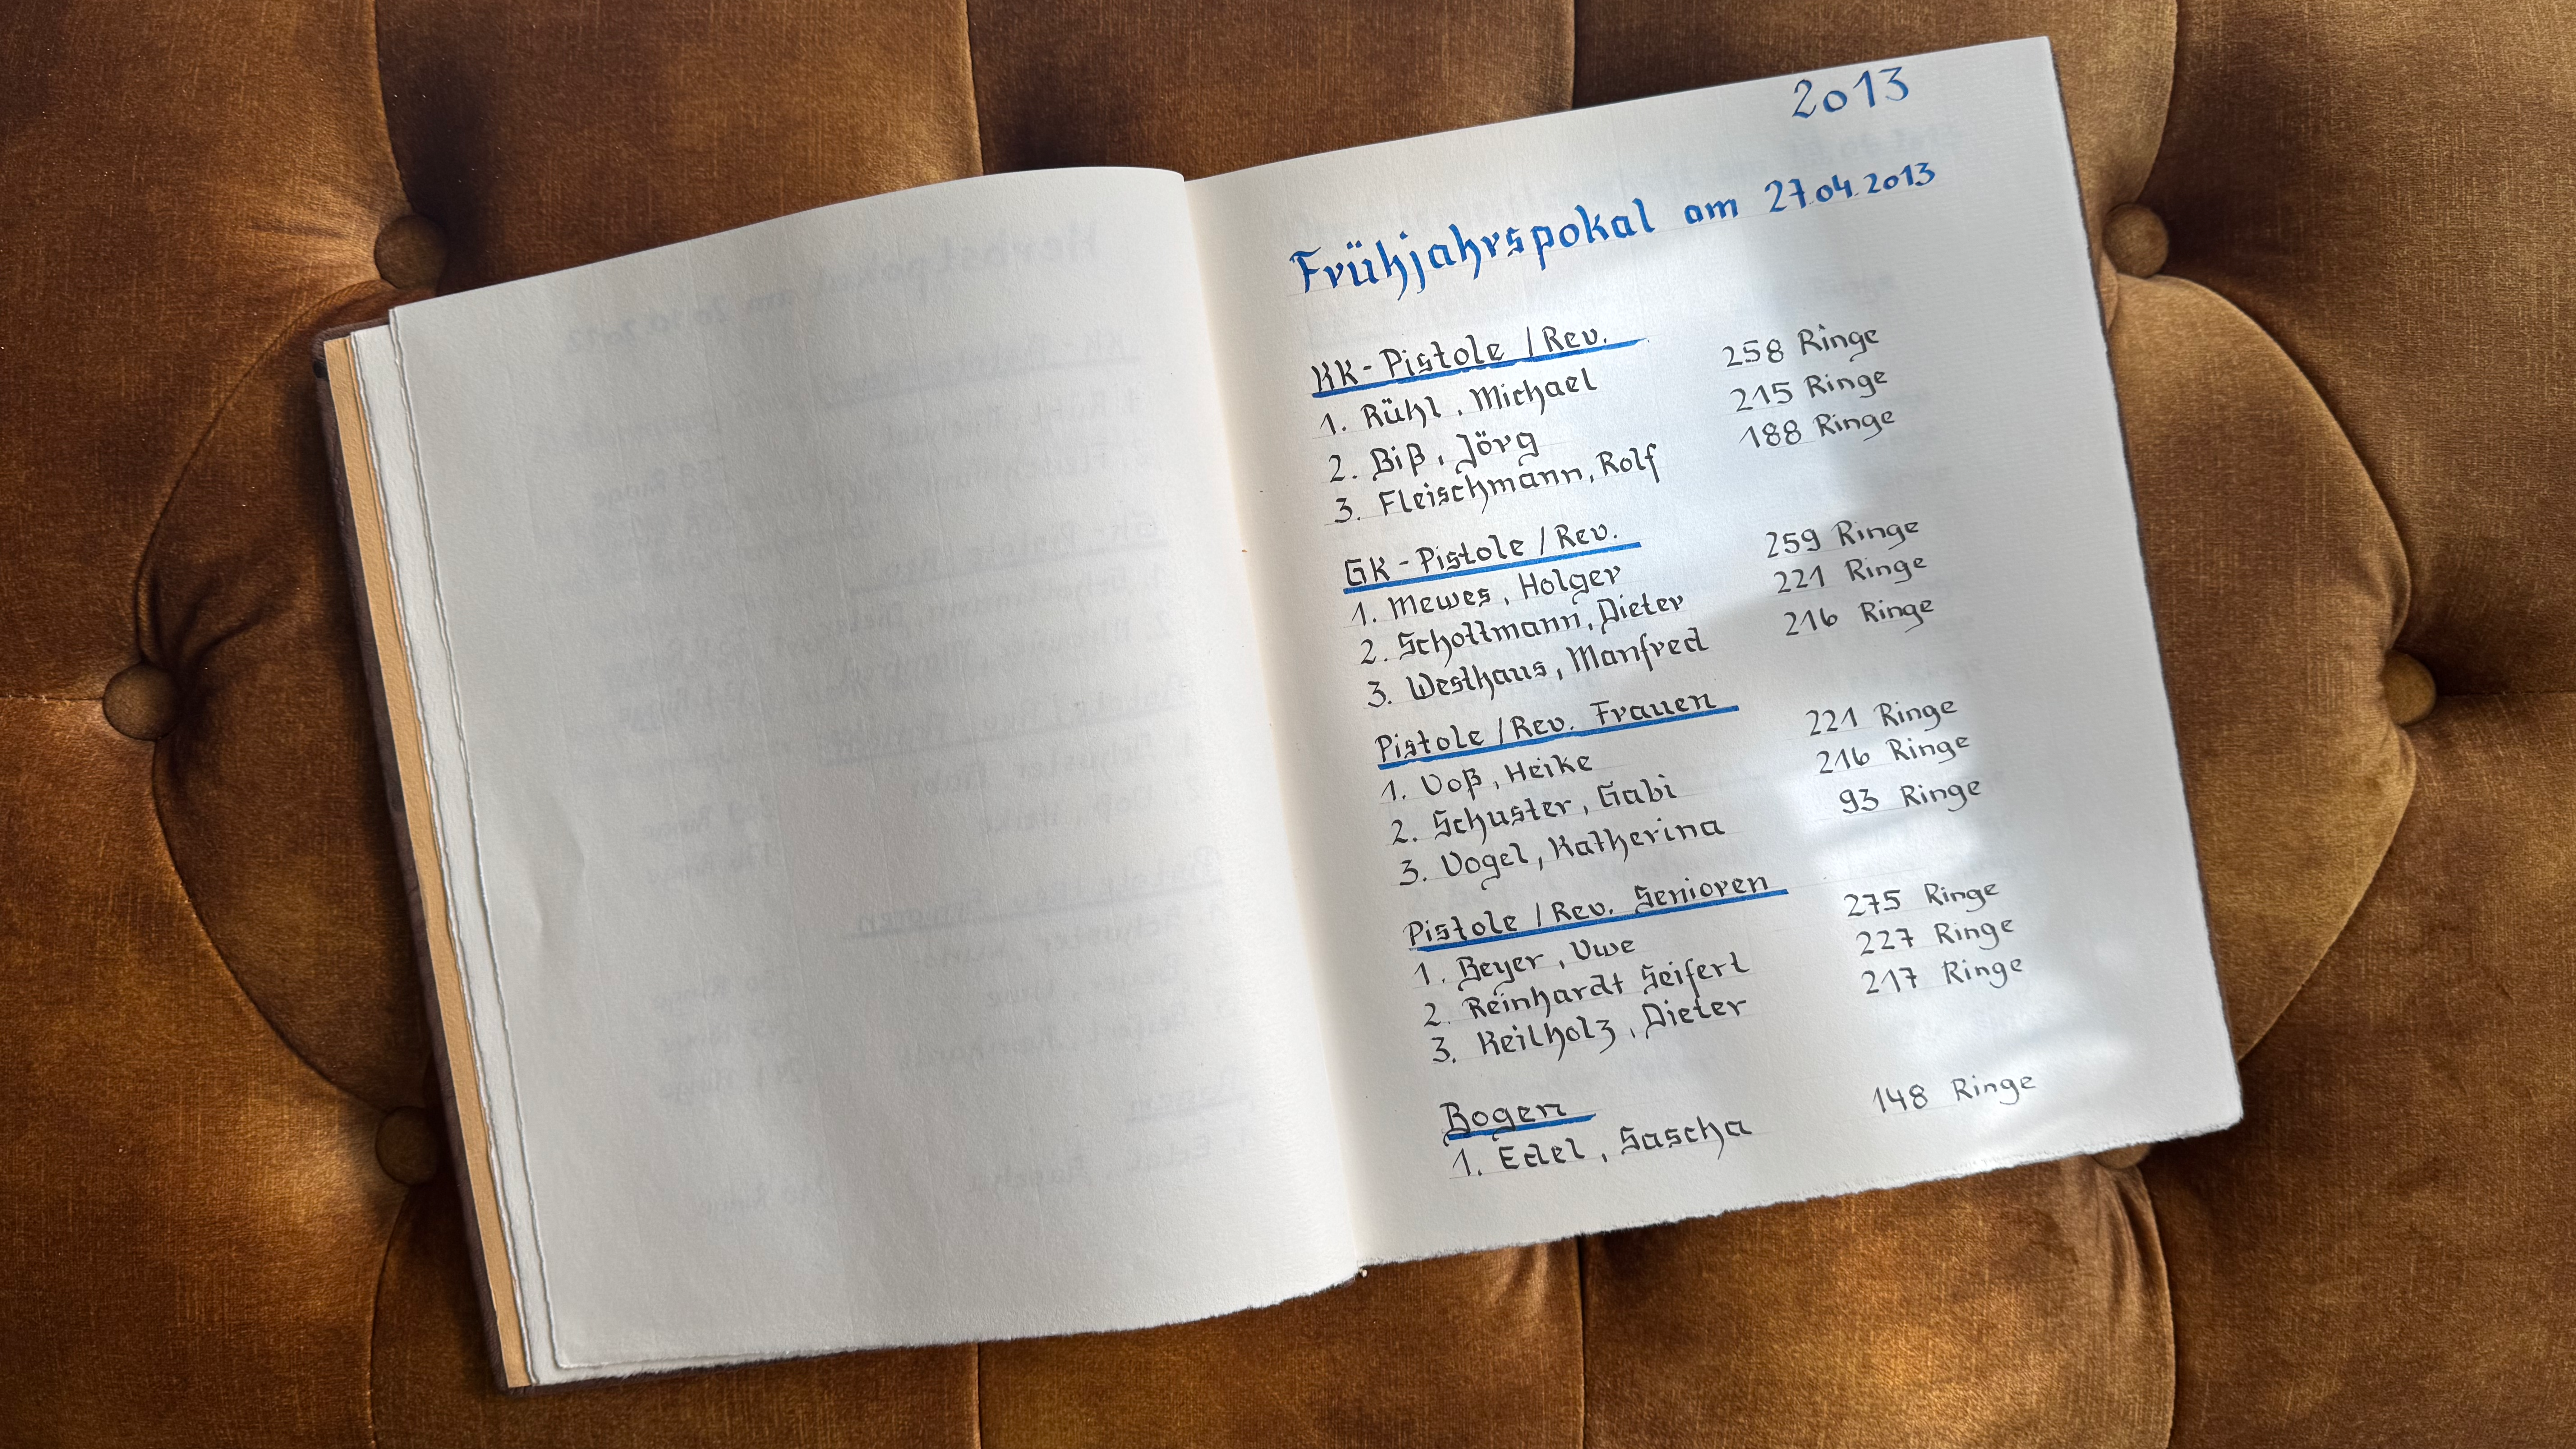 2013
Frühjahrspokal am 27.04.2013
KK-Pistole / Rev.
1. Rühl, Michael 258 Ringe
2. Biß, Jörg 215 Ringe
3. Fleischmann, Rolf 188 Ringe
GK-Pistole / Rev.
1. Mewes, Holger 259 Ringe
2. Schollmann, Dieter 221 Ringe
3. Westhaus, Manfred 216 Ringe
Pistole / Rev. Frauen
1. Voß, Heike 221 Ringe
2. Schuster, Gabi 216 Ringe
3. Vogel, Katherina 93 Ringe
Pistole / Rev. Senioren
1. Beyer, Uwe 275 Ringe
2. Reinhardt Seifert 227 Ringe
3. Keilholz, Dieter 217 Ringe
Bogen
1. Edel, Sascha 148 Ringe